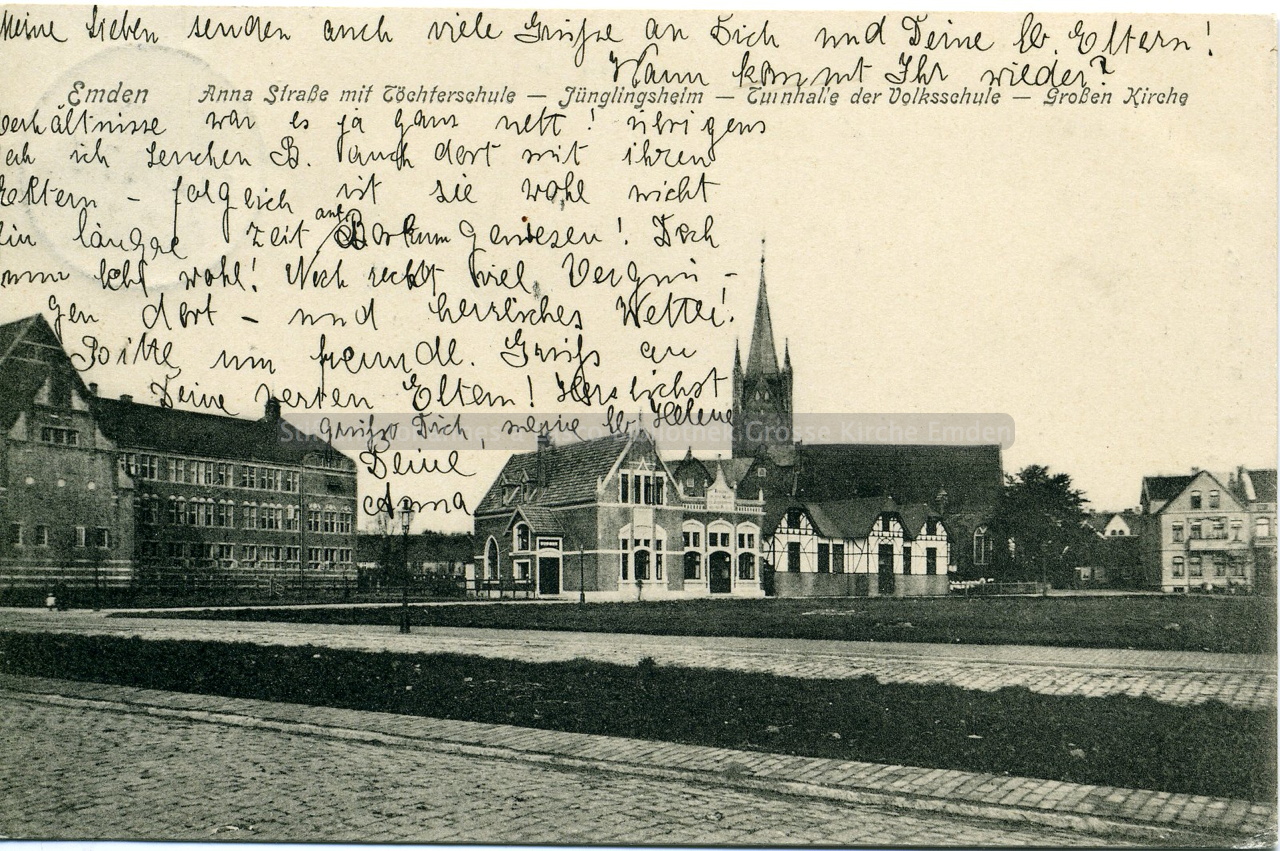 Meine Lieben senden auch viele Grüße an Dich und Deine lb. Eltern!
Wann kommt Ihr wieder?
Emden Anna Straße mit Töchterschule — Jünglingsheim — Turnhalle der Volksschule — Großen Kirche
verhältnisse war es ja ganz nett! übrigens
ich B. auch dort mit ihren
Eltern - folglich ist sie wohl nicht
ein längre Zeit auf Borkum gewesen! Doch
nun lebt wohl! Noch recht viel Vergnü-
gen dort - und herrliches Wetter!
Bitte um freundl. Gruß an
Deine werten Eltern! Herzlichst
grüßt Dich, meine lb. Helene
Deine
Anna
Große Kirche Emden